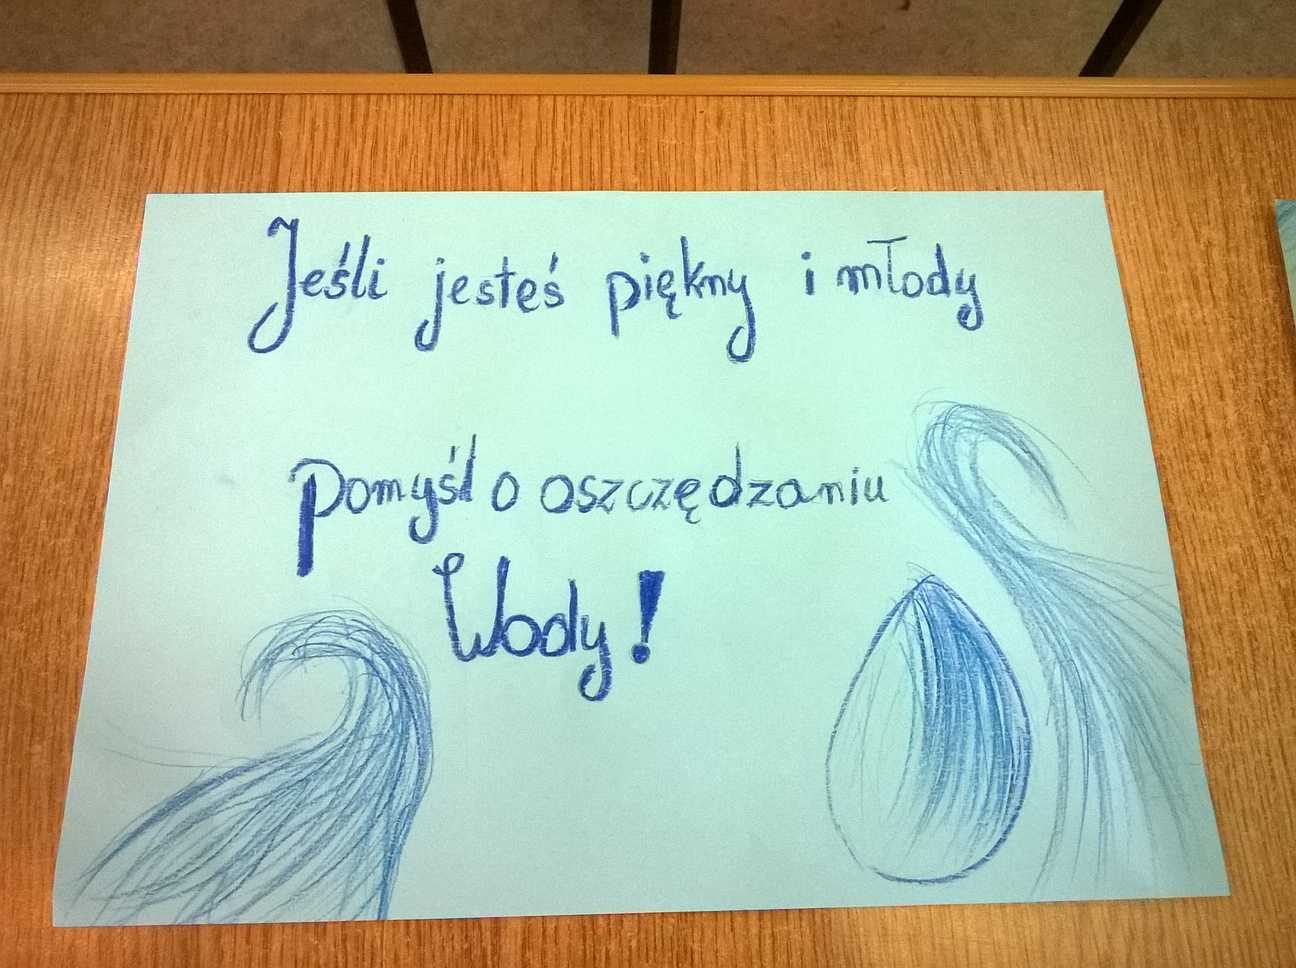 Jeśli jesteś piękny i młody
Pomyśl o oszczędzaniu
Wody!